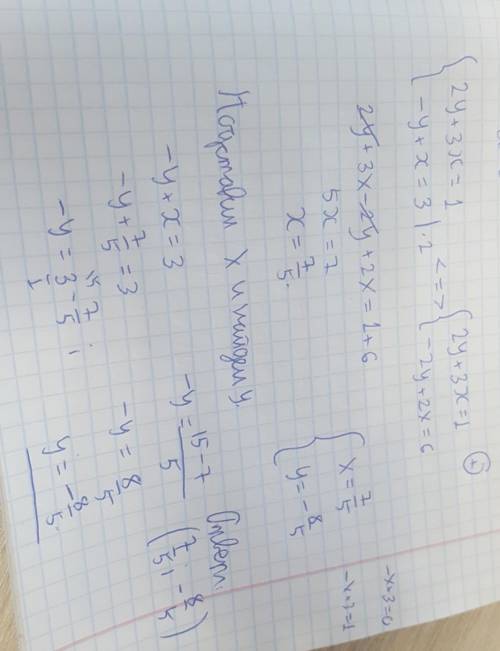 { 2y + 3x = 1
{ -y + x = 3 | · 2 <=> { 2y + 3x = 1
{ -2y + 2x = 6 (+)
2y + 3x - 2y + 2x = 1 + 6
5x = 7
x = 7/5.
Подставим x и найдем y.
-y + x = 3
-y + 7/5 = 3
-y = 3/1 - 7/5 ;
-y = (15 - 7)/5
-y = 8/5
y = -8/5.
{ x = 7/5
{ y = -8/5
Ответ:
(7/5; -8/5)